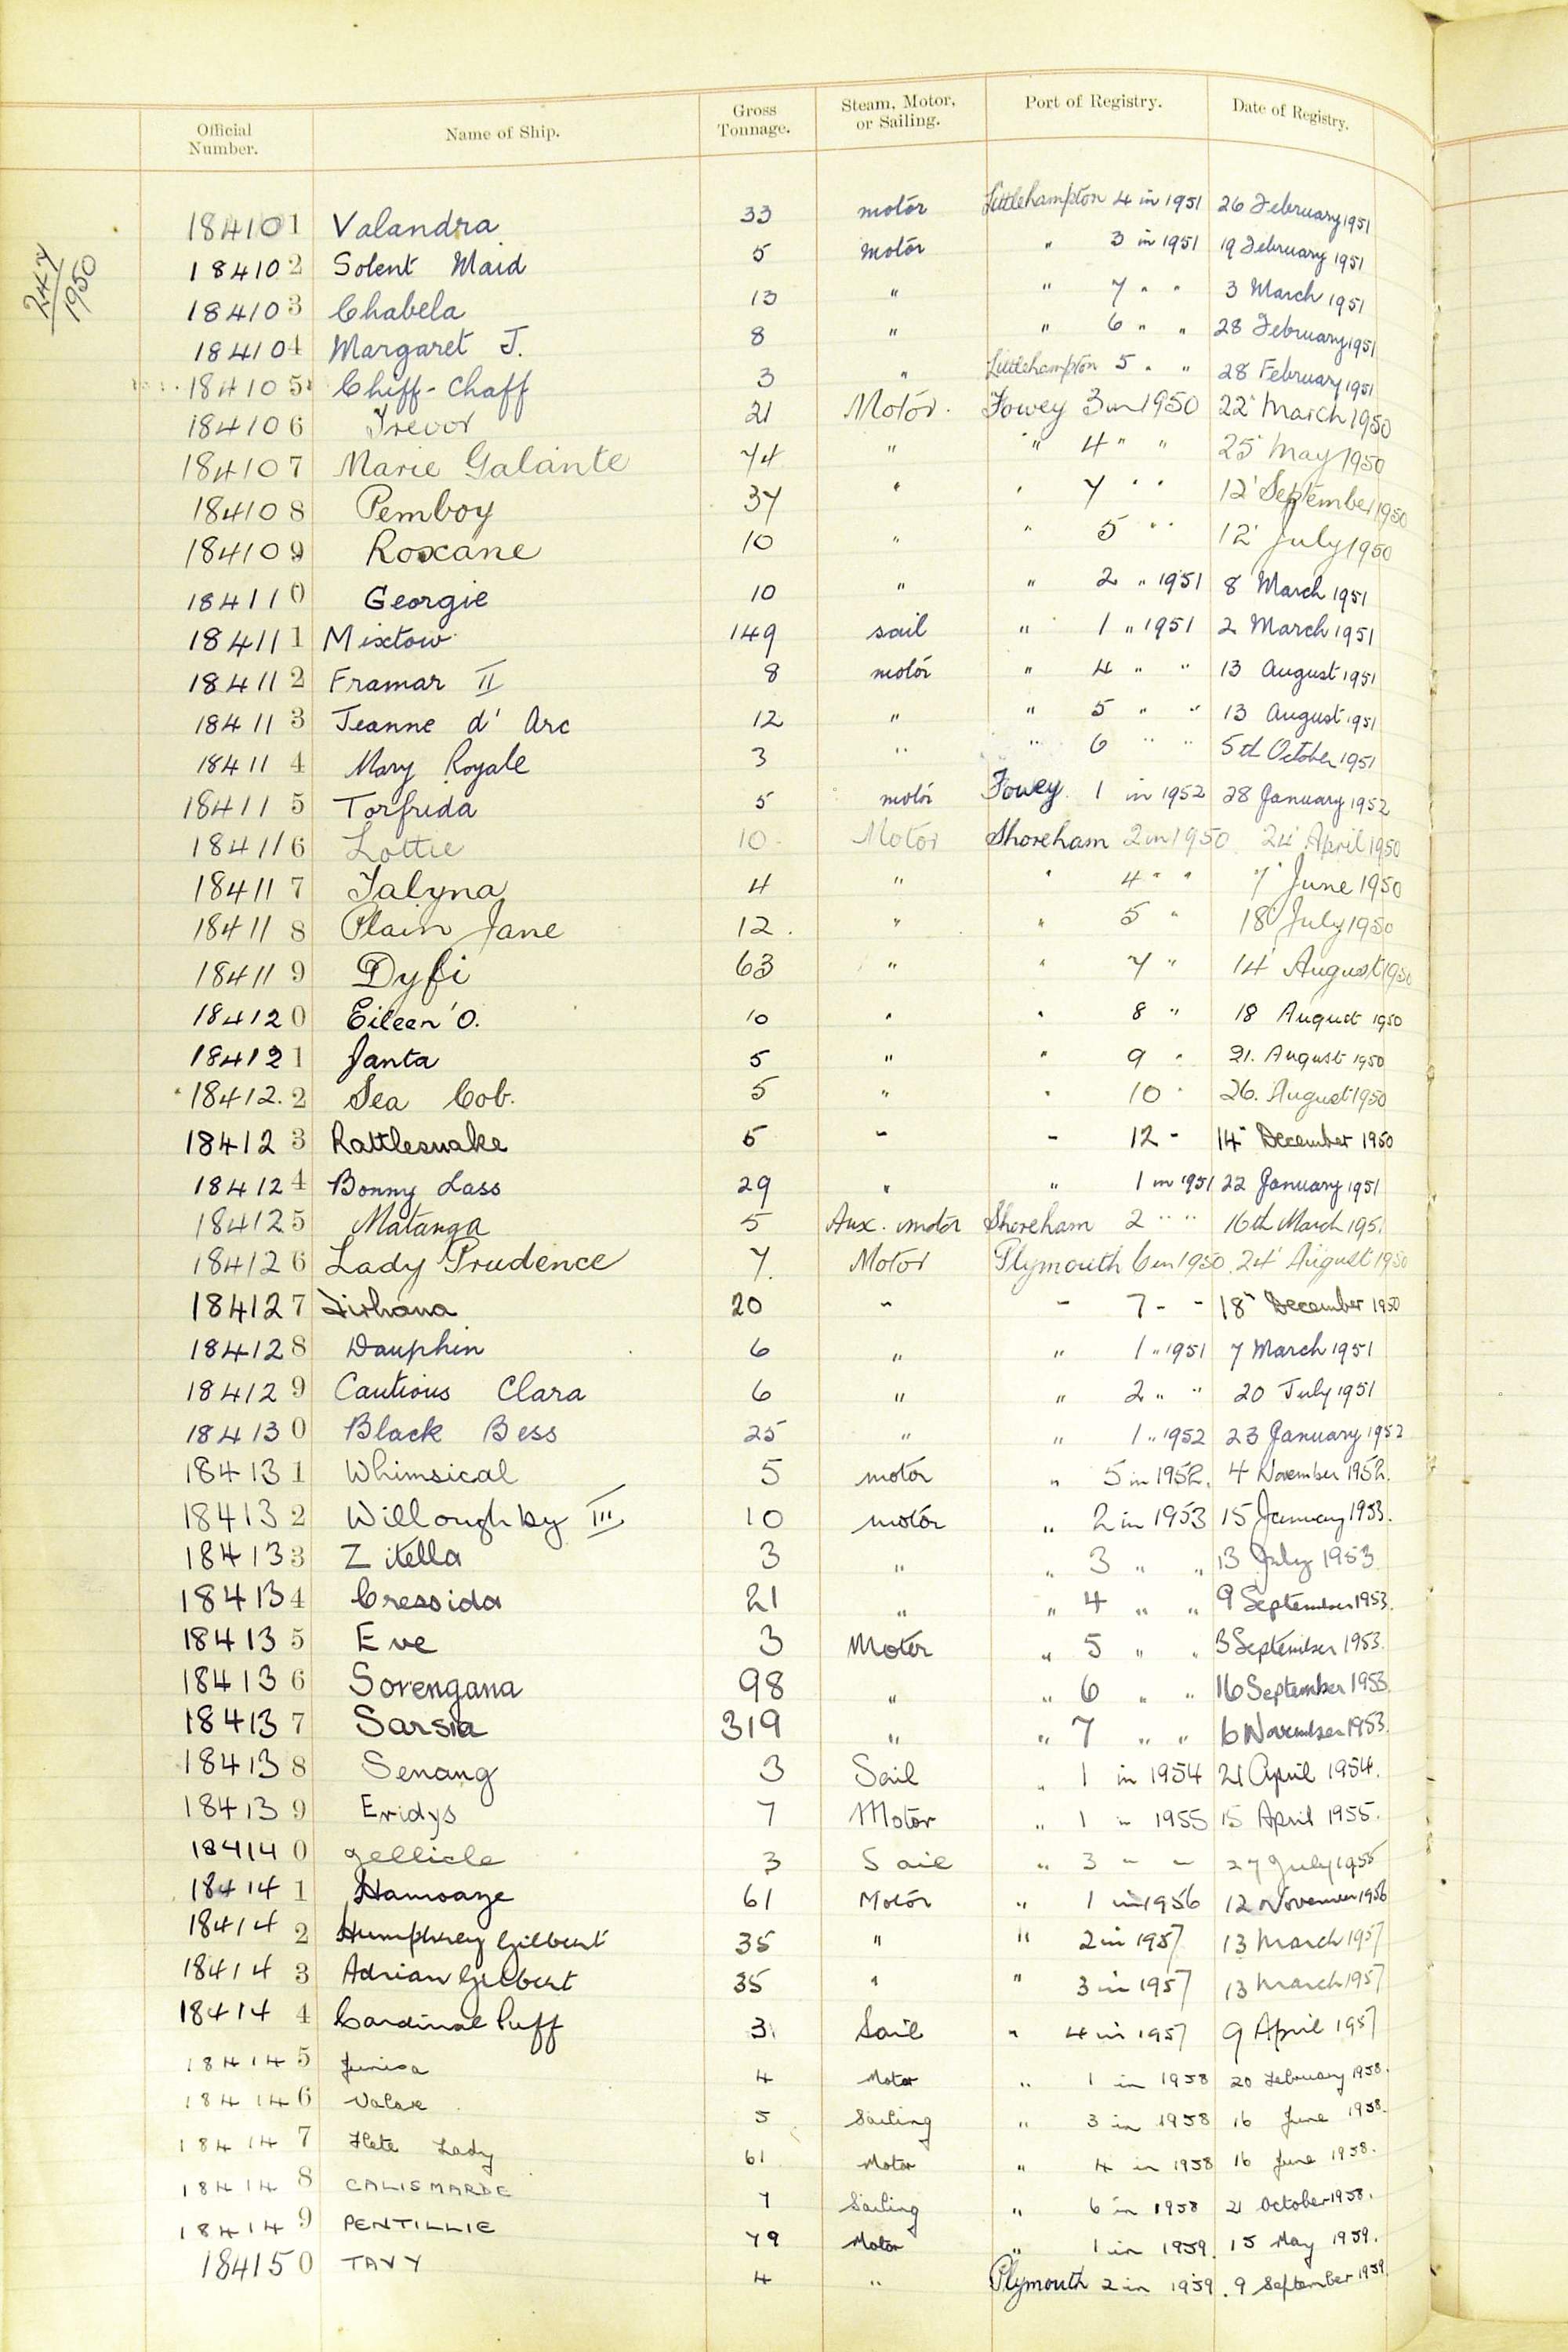 247
1950
Official Number. Name of Ship. Gross Tonnage. Steam, Motor, or Sailing. Port of Registry. Date of Registry.
184101 Valandra 33 motor Littlehampton 4 in 1951 26 February 1951
184102 Solent Maid 5 motor " 3 in 1951 19 February 1951
184103 Chabela 13 " " 7 " " 3 March 1951
184104 Margaret J. 8 " " 6 " " 28 February 1951
184105 Chiff-Chaff 3 " Littlehampton 5 " " 28 February 1951
184106 Trevor 21 Motor. Fowey 3 in 1950 22 March 1950
184107 Marie Galante 74 " " 4 " " 25 May 1950
184108 Pemboy 37 " " 7 " " 12 September 1950
184109 Roxane 10 " " 5 " " 12 July 1950
184110 Georgie 10 " " 2 " 1951 8 March 1951
184111 Mixtow 149 sail " 1 " 1951 2 March 1951
184112 Framar II 8 motor " 4 " " 13 August 1951
184113 Jeanne d' Arc 12 " " 5 " " 13 August 1951
184114 Mary Royale 3 " " 6 " " 5th October 1951
184115 Torfrida 5 motor Fowey 1 in 1952 28 January 1952
184116 Lottie 10 Motor Shoreham 2 in 1950 24 April 1950
184117 Talyna 4 " " 4 " " 7 June 1950
184118 Plain Jane 12. " " 5 " 18 July 1950
184119 Dyfi 63 " " 7 " 14 August 1950
184120 Eileen 'O. 10 " " 8 " 18 August 1950
184121 Janta 5 " " 9 " 21. August 1950
184122 Sea Cob. 5 " " 10 " 26. August 1950
184123 Rattlesnake 5 " " 12 " 14 December 1950
184124 Bonny Lass 29 " " 1 in 1951 22 January 1951
184125 Matanga 5 Aux. motor Shoreham 2 " " 16th March 1951
184126 Lady Prudence 7. Motor Plymouth 6 in 1950 24 August 1950
184127 20 " " 7 " " 18 December 1950
184128 Dauphin 6 " " 1 " 1951 7 March 1951
184129 Cautious Clara 6 " " 2 " " 20 July 1951
184130 Black Bess 25 " " 1 " 1952 23 January 1952
184131 Whimsical 5 motor " 5 in 1952. 4 November 1952.
184132 Willoughby III 10 motor " 2 in 1953 15 January 1953.
184133 Zitella 3 " " 3 " " 13 July 1953
184134 Cressida 21 " " 4 " " 9 September 1953.
184135 Eve 3 Motor " 5 " " 3 September 1953.
184136 Sorengana 98 " " 6 " " 16 September 1953.
184137 Sarsia 319 " " 7 " " 6 November 1953.
184138 Senang 3 Sail " 1 in 1954 21 April 1954.
184139 Eridys 7 Motor " 1 " 1955 15 April 1955.
184140 Gellicle 3 Sail " 3 " " 27 July 1955
184141 Hamoaze 61 Motor " 1 in 1956 12 November 1956
184142 Humphrey Gilbert 35 " " 2 in 1957 13 March 1957
184143 Adrian Gilbert 35 " " 3 in 1957 13 March 1957
184144 Cardinal Puff 3 Sail " 4 in 1957 9 April 1957
184145 Junica 4 Motor " 1 in 1958 20 February 1958.
184146 5 Sailing " 3 in 1958 16 June 1958.
184147 Flete Lady 61 Motor " 4 in 1958 16 June 1958.
184148 CALISMARDE 7 Sailing " 6 in 1958 21 October 1958.
184149 PENTILLIE 79 Motor " 1 in 1959. 15 May 1959.
184150 TAVY 4 " Plymouth 2 in 1959. 9 September 1959.